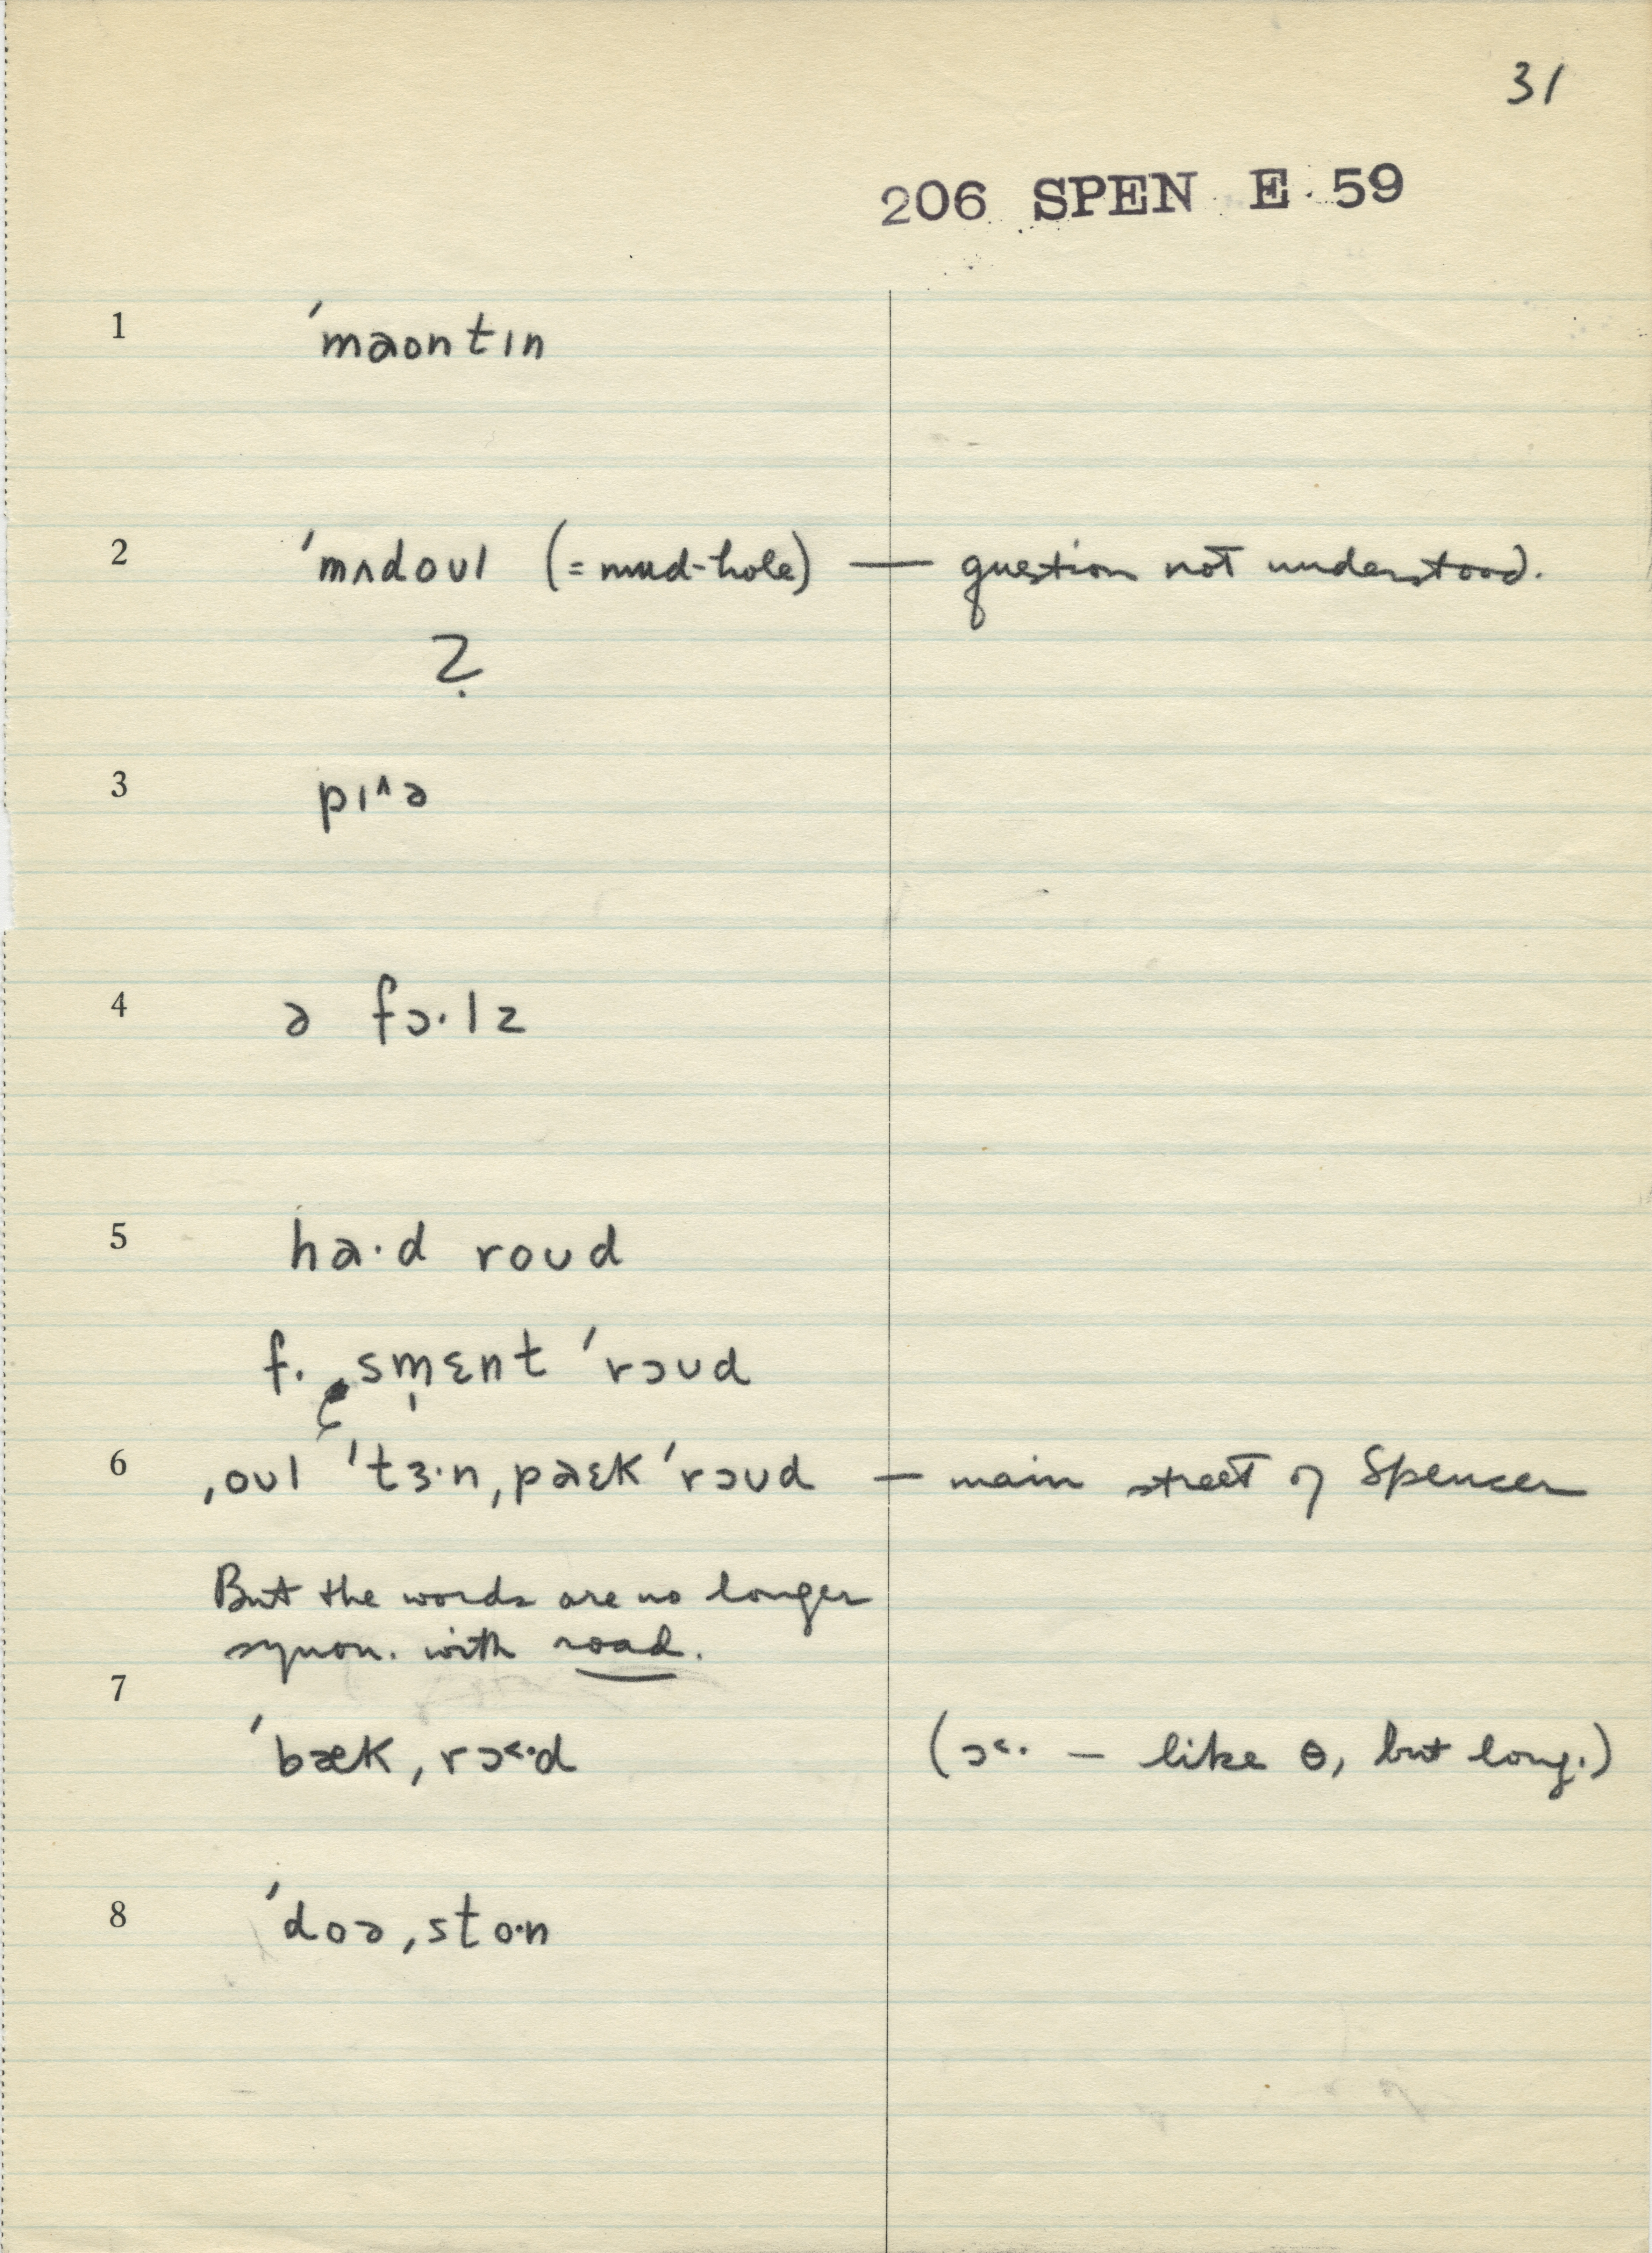 31
206 SPEN E 59
1 ˈmaontɪn
2 ˈmʌdoʊl (= mud-hole) — question not understood.
?
3 pɪ^ə
4 ə fɔ·lz
5 ha·d roʊd
f. ˌsm̩ɛnt ˈrɔʊd
6 ˌoʊl ˈtɜ·nˌpaɛk ˈrɔʊd — main street of Spencer
But the words are no longer
synon. with road.
7
ˈbækˌrɔ<·d (ɔ<· — like ɵ, but long.)
8 ˈdoəˌsto·n